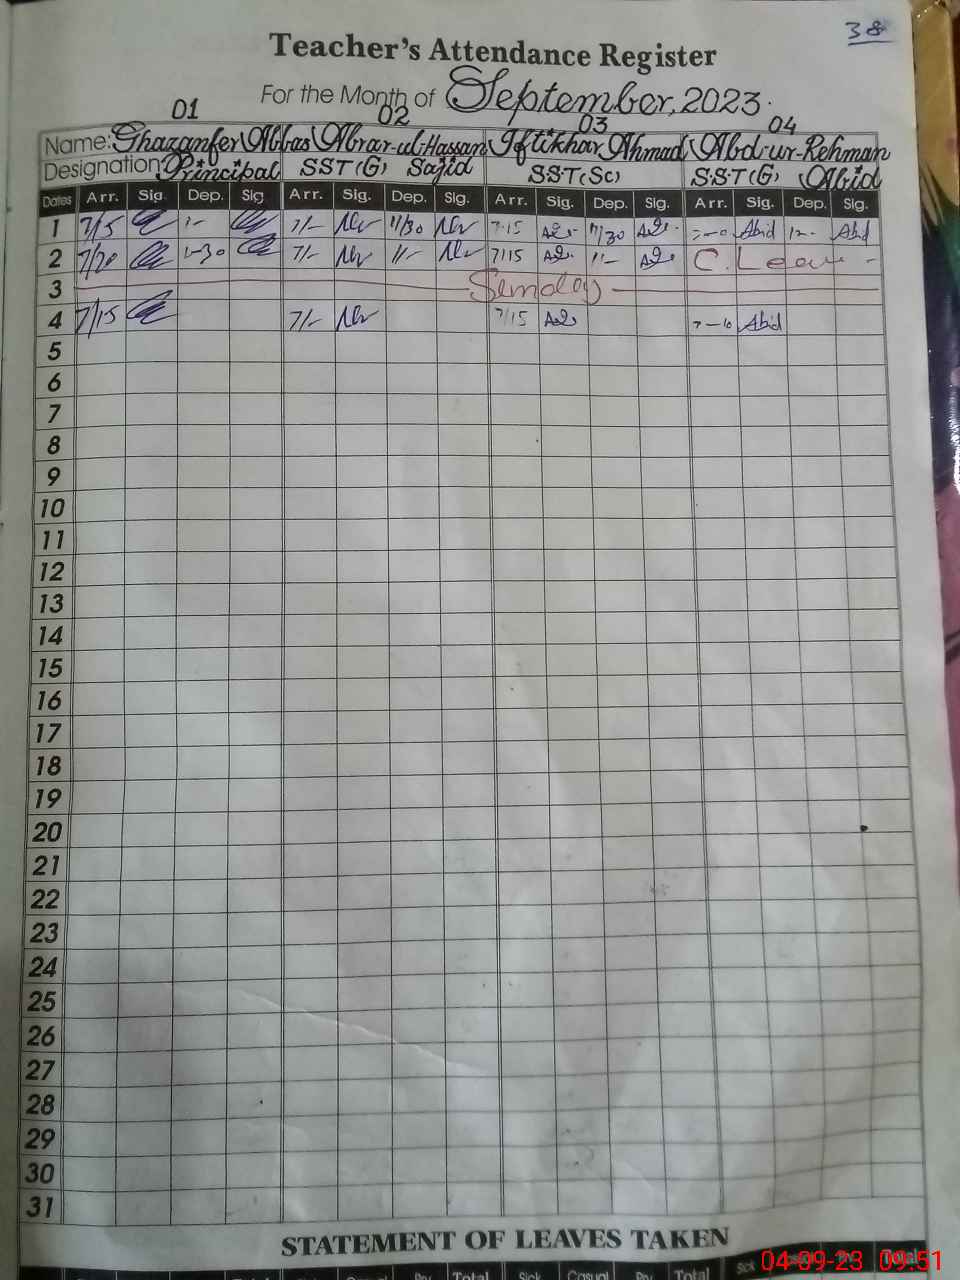 38
Teacher's Attendance Register
For the Month of September, 2023.
01 02 03 04
Name: Ghazanfer Abbas Abrar-ul-Hassan Iftikhar Ahmad Abd-ur-Rehman
Designation: Principal SST (G) Sajid SST (Sc) S.S.T (G) Abid
Dates Arr. Sig. Dep. Sig. Arr. Sig. Dep. Sig. Arr. Sig. Dep. Sig. Arr. Sig. Dep. Sig.
1 7/15 1- 7/- 11/30 7-15 11/30 Abid 12- Abid
2 7/20 1-30 7/- 11/- 7/15 11- C. Leave -
3 Sunday
4 7/15 7/- 7/15 7-10 Abid
5
6
7
8
9
10
11
12
13
14
15
16
17
18
19
20
21
22
23
24
25
26
27
28
29
30
31
STATEMENT OF LEAVES TAKEN
Total Sick Casual Prv. Total Sick
04-09-23 09:51